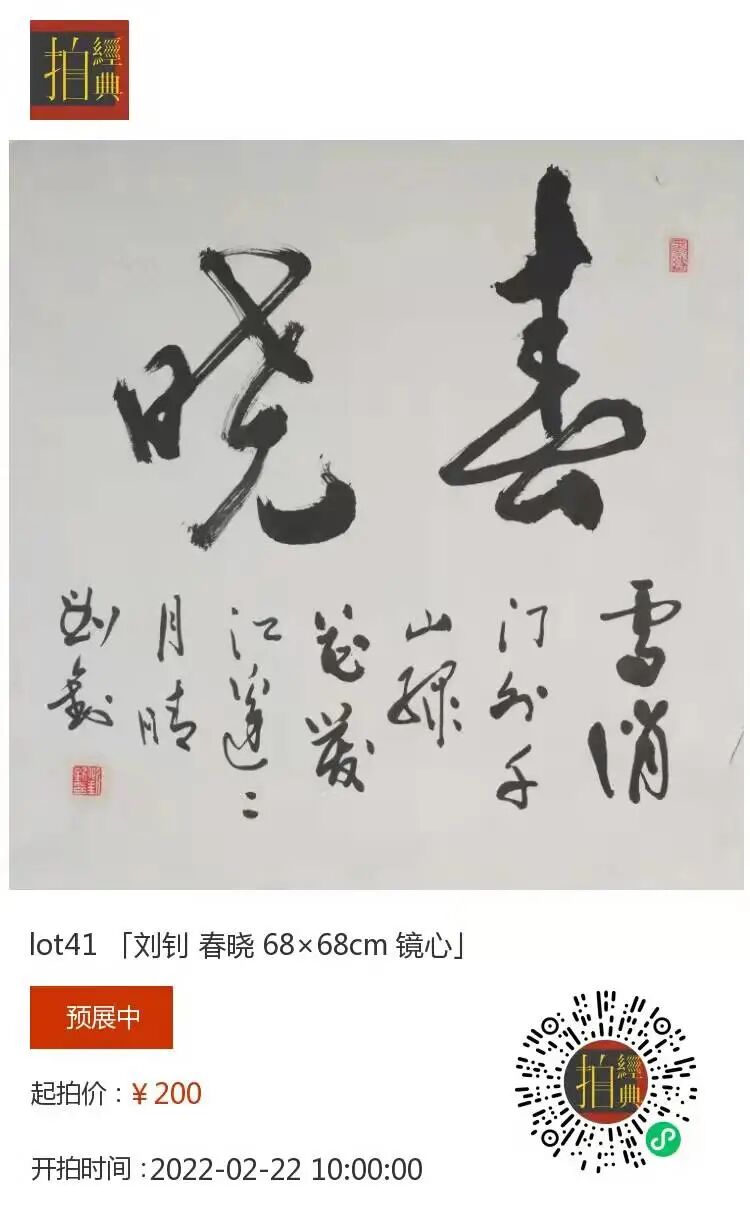 拍
經典
春晓
雪消
门外千
山緑
花發
江邊二
月晴
劉釗
lot41 「刘钊 春晓 68×68cm 镜心」
预展中
起拍价：¥200
开拍时间：2022-02-22 10:00:00
拍
經典